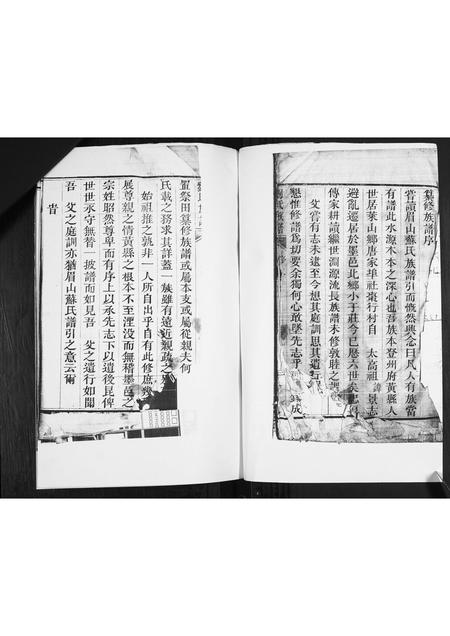 纂修族譜序
嘗讀眉山蘇氏族譜引而慨然興念曰凡人有族當
有譜此水源木本之深心也吾族本登州府黃縣人
世居萊山鄉唐家埠社棗行村自 太高祖諱景志
避亂遷居於墨邑此鄉小于莊今已歷六世矣
傳家耕讀繼世淵源流長族譜未修敦睦之
父嘗有志未逮至今想其庭訓思其遺
懇惟修譜為切要余獨何心敢墜先志乎 成
置祭田纂修族譜或屬本支或屬從親夫何
氏載之務求其詳蓋一族雖有遠近親疏之
始祖推之孰非一人所自出乎自有此修庶
展尊親之情黃縣之根本不至湮沒而無稽墨邑之
宗姓昭然尊卑而有序上以承先志下以遺後昆俾
世世永守無替一披譜而如見吾 父之遺行如聞
吾 父之庭訓亦猶眉山蘇氏譜引之意云爾
旹